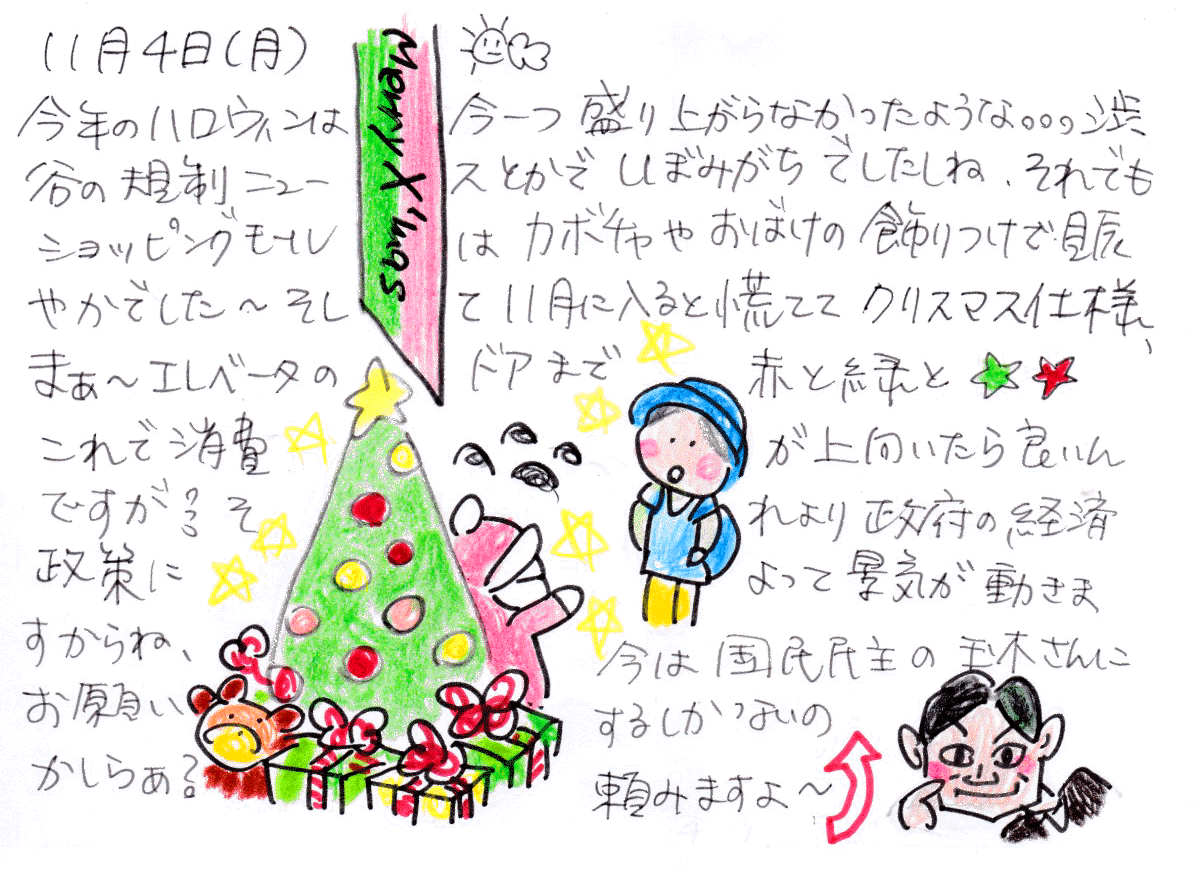 11月4日(月)
Merry X'mas
今年のハロウィンは今一つ盛り上がらなかったような。。。渋
谷の規制ニュースとかでしぼみがちでしたしね、それでも
ショッピングモールはカボチャやおばけの飾りつけで賑
やかでした〜そして11月に入ると慌ててクリスマス仕様、
まぁ〜エレベータのドアまで赤と緑と
これで消費が上向いたら良いん
ですが?それより政府の経済
政策によって景気が動きま
すからね、今は国民民主の玉木さんに
お願いするしかないの
かしらぁ?頼みますよ〜